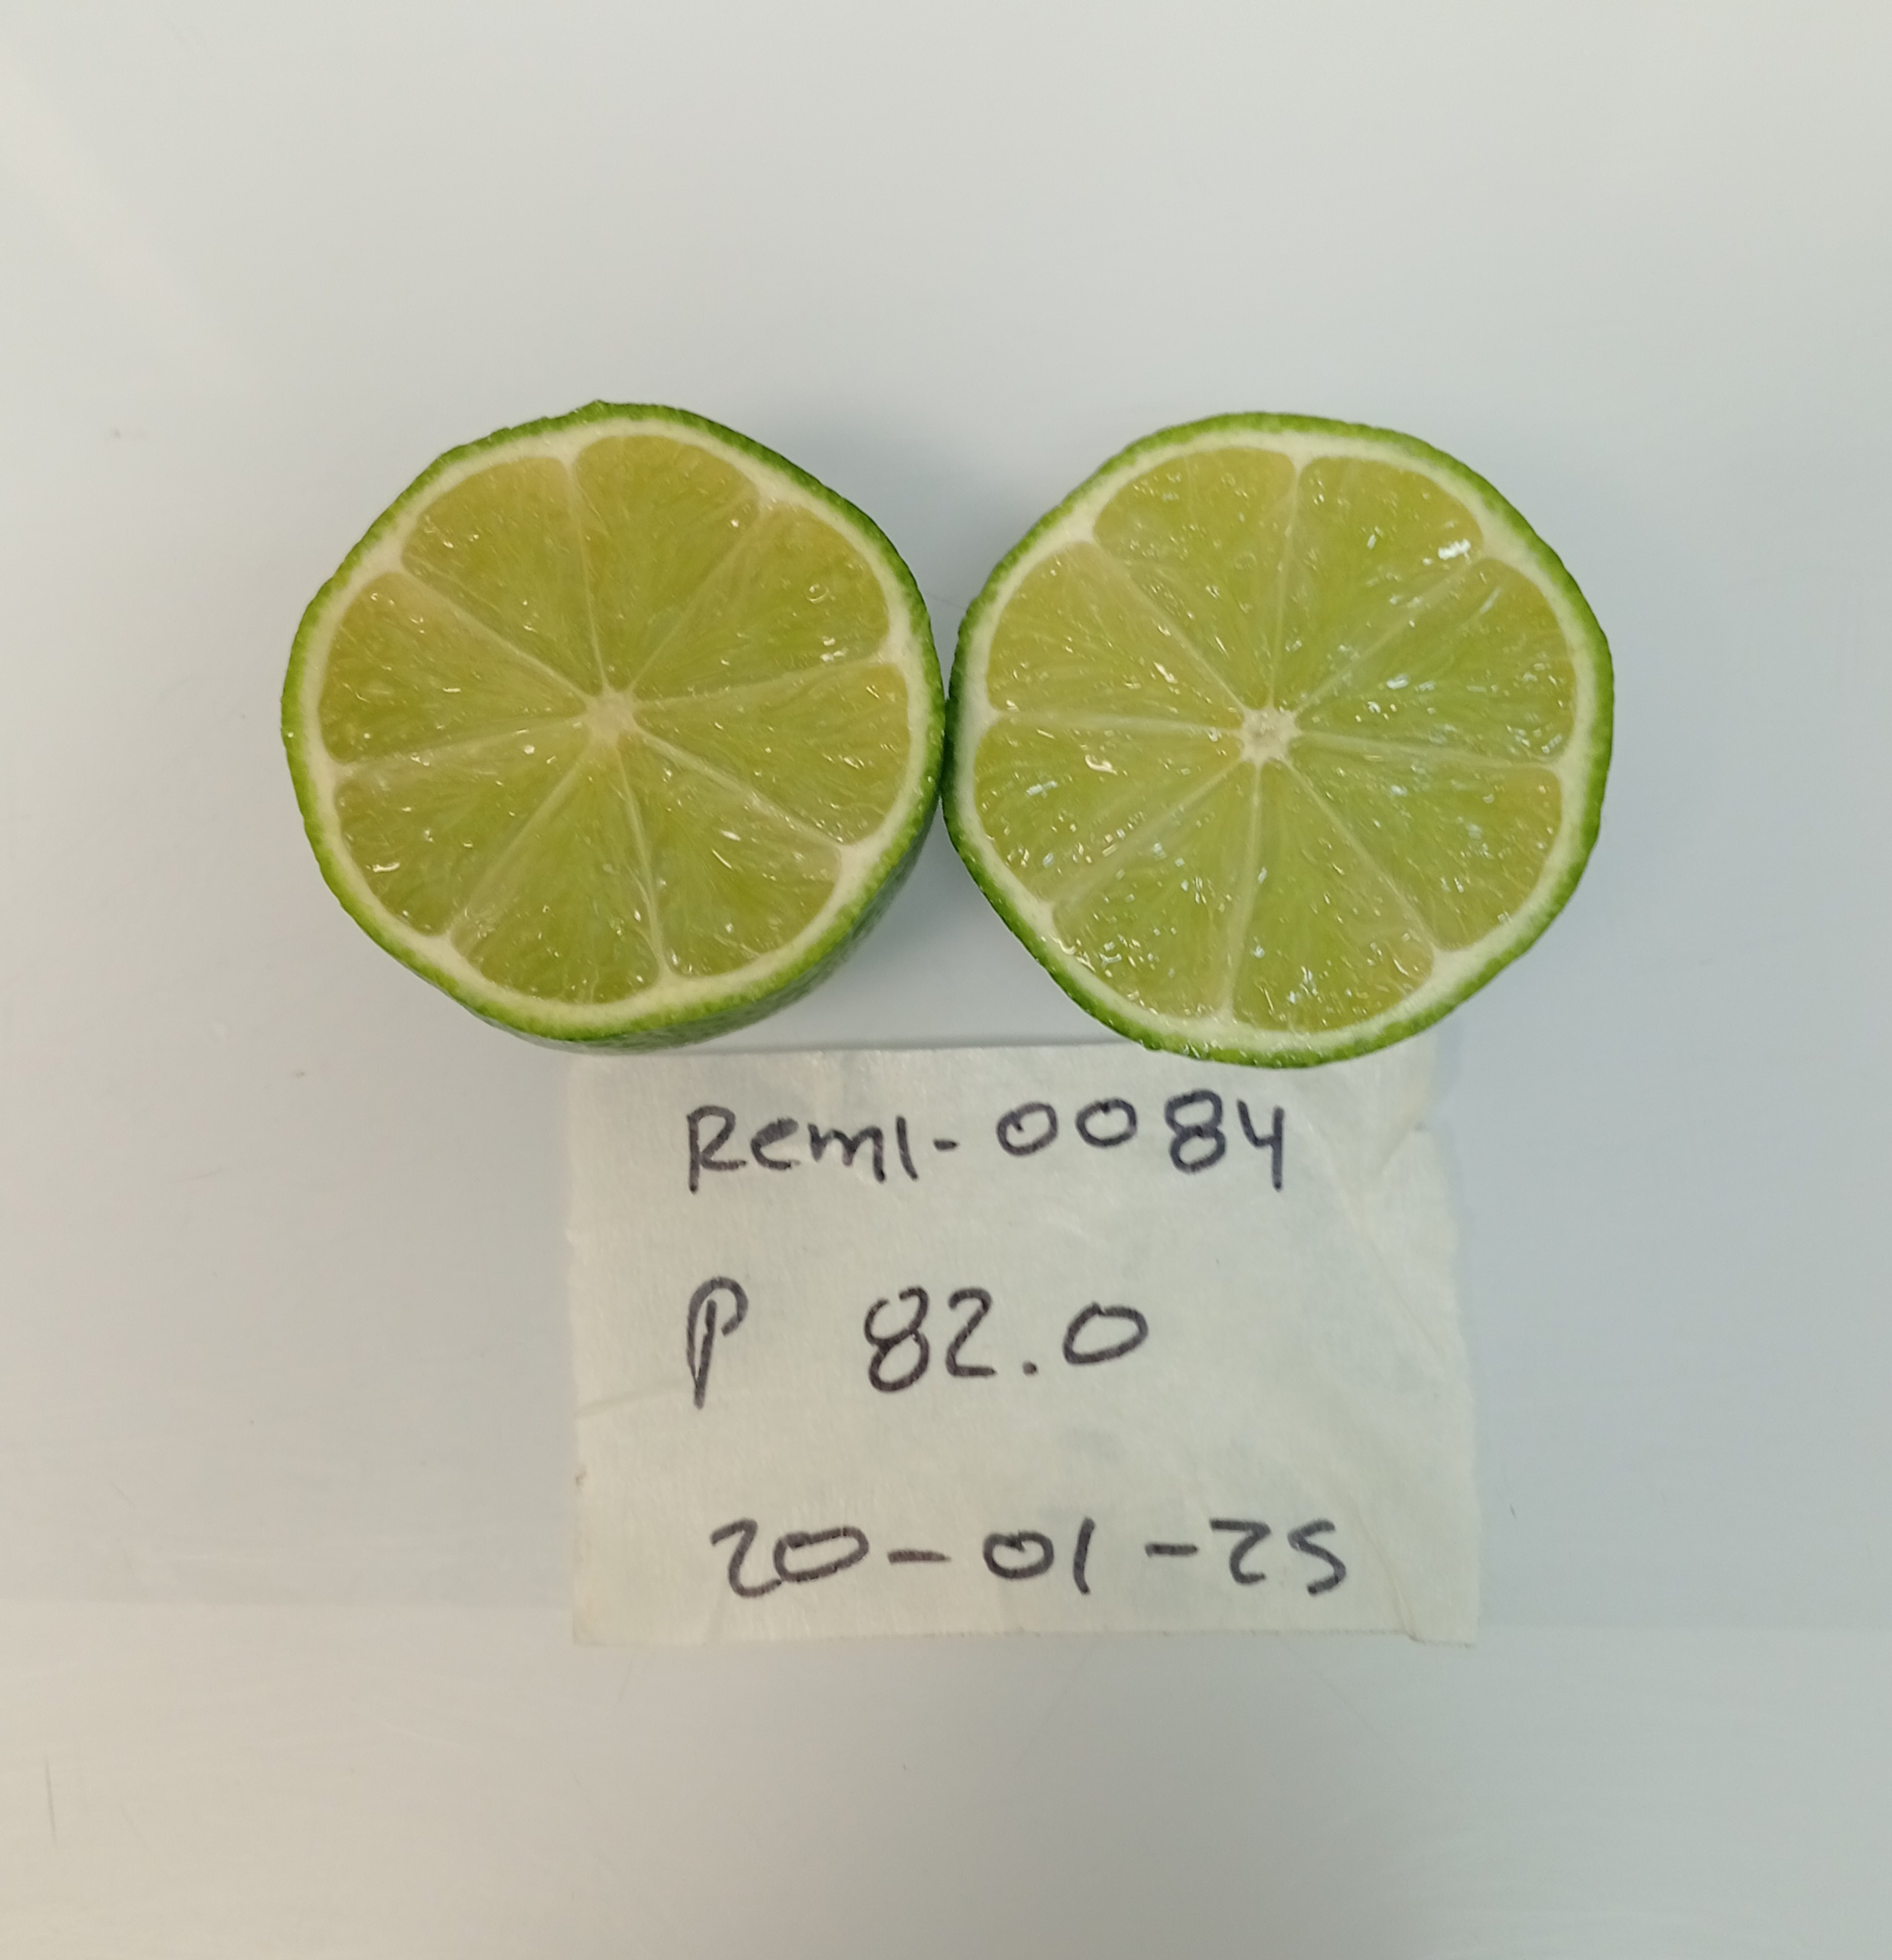 Reml-0084
P 82.0
20-01-25